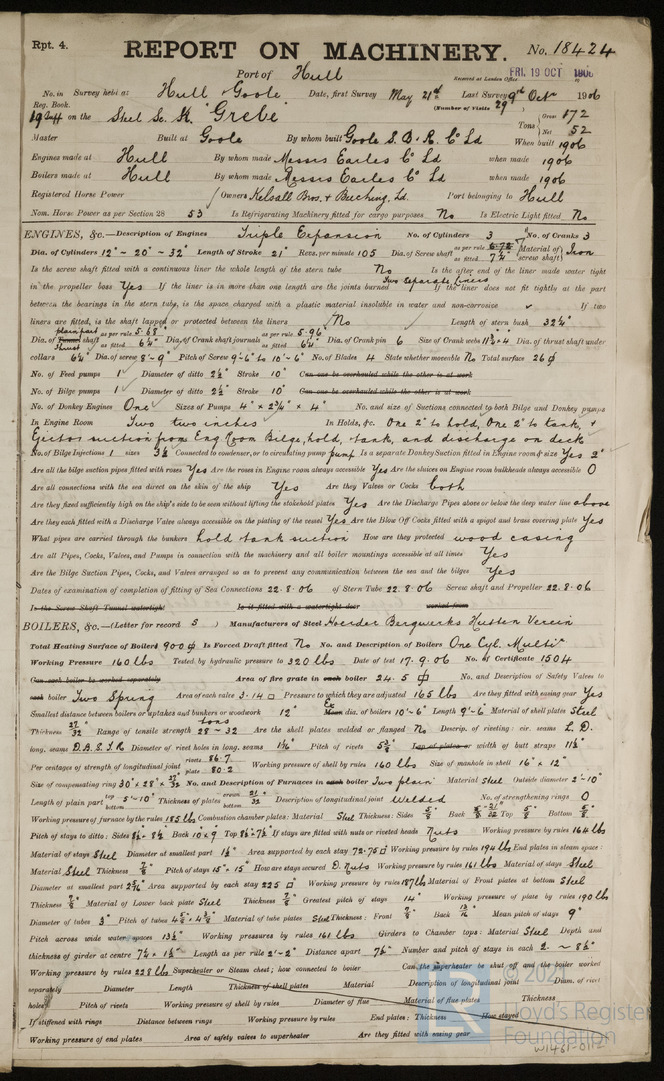 Rpt. 4.
REPORT ON MACHINERY. No. 18424
Port of Hull
Received at London Office FRI. 19 OCT 1906
No. in Survey held at Hull & Goole Date, first Survey May 21st Last Survey 9th Oct 1906
Reg. Book. (Number of Visits 29
19 Supp on the Steel Sc. K "Grebe" Tons Gross 172 Net 52
Master Built at Goole By whom built Goole S. B. & R. Co Ld When built 1906
Engines made at Hull By whom made Messrs Earles Co Ld when made 1906
Boilers made at Hull By whom made Messrs Earles Co Ld when made 1906
Registered Horse Power Owners Kelsall Bros. & Beeching, Ld. Port belonging to Hull
Nom. Horse Power as per Section 28 53 Is Refrigerating Machinery fitted for cargo purposes No Is Electric Light fitted No
ENGINES, &c.—Description of Engines Triple Expansion No. of Cylinders 3 No. of Cranks 3
Dia. of Cylinders 12" ~ 20" ~ 32" Length of Stroke 21" Revs. per minute 105 Dia. of Screw shaft as per rule as fitted 7¼" Material of screw shaft Iron
Is the screw shaft fitted with a continuous liner the whole length of the stern tube No Is the after end of the liner made water tight
in the propeller boss Yes If the liner is in more than one length are the joints burned Two Separate Liners If the liner does not fit tightly at the part
between the bearings in the stern tube, is the space charged with a plastic material insoluble in water and non-corrosive If two
liners are fitted, is the shaft lapped or protected between the liners No Length of stern bush 32¼"
Dia. of Tunnel shaft plain part Thrust as per rule 5.68" as fitted 6¼" Dia. of Crank shaft journals as per rule 5.96" as fitted 6¼" Dia. of Crank pin 6 Size of Crank webs 11¾ × 4 Dia. of thrust shaft under
collars 6¼" Dia. of screw 8'-9" Pitch of Screw 9'-6" to 10'-6" No. of Blades 4 State whether moveable No Total surface 26 ϕ
No. of Feed pumps 1 Diameter of ditto 2½" Stroke 10" Can one be overhauled while the other is at work
No. of Bilge pumps 1 Diameter of ditto 2½" Stroke 10" Can one be overhauled while the other is at work
No. of Donkey Engines One Sizes of Pumps 4" × 2¾" × 4" No. and size of Suctions connected to both Bilge and Donkey pumps
In Engine Room Two two inches In Holds, &c. One 2" to hold, One 2" to tank, &
Ejector suction from Eng Room Bilge, hold, tank, and discharge on deck
No. of Bilge Injections 1 sizes 3½ Connected to condenser, or to circulating pump pump Is a separate Donkey Suction fitted in Engine room & size Yes 2"
Are all the bilge suction pipes fitted with roses Yes Are the roses in Engine room always accessible Yes Are the sluices on Engine room bulkheads always accessible 0
Are all connections with the sea direct on the skin of the ship Yes Are they Valves or Cocks both
Are they fixed sufficiently high on the ship's side to be seen without lifting the stokehold plates Yes Are the Discharge Pipes above or below the deep water line above
Are they each fitted with a Discharge Valve always accessible on the plating of the vessel Yes Are the Blow Off Cocks fitted with a spigot and brass covering plate Yes
What pipes are carried through the bunkers hold tank suction How are they protected wood casing
Are all Pipes, Cocks, Valves, and Pumps in connection with the machinery and all boiler mountings accessible at all times Yes
Are the Bilge Suction Pipes, Cocks, and Valves arranged so as to prevent any communication between the sea and the bilges Yes
Dates of examination of completion of fitting of Sea Connections 22.8.06 of Stern Tube 22.8.06 Screw shaft and Propeller 22.8.06
Is the Screw Shaft Tunnel watertight Is it fitted with a watertight door worked from
BOILERS, &c.—(Letter for record S) Manufacturers of Steel Hoerder Bergwerks Hutten Verein
Total Heating Surface of Boilers 900 ϕ Is Forced Draft fitted No No. and Description of Boilers One Cyl. Multir
Working Pressure 160 lbs Tested by hydraulic pressure to 320 lbs Date of test 17.9.06 No. of Certificate 1504
Can each boiler be worked separately Area of fire grate in each boiler 24.5 ϕ No. and Description of Safety Valves to
each boiler Two Spring Area of each valve 3.14 □ Pressure to which they are adjusted 165 lbs Are they fitted with easing gear Yes
Smallest distance between boilers or uptakes and bunkers or woodwork 12" Ex Mean dia. of boilers 10'-6" Length 9'-6" Material of shell plates Steel
Thickness 27/32 Range of tensile strength 28 ~ 32 tons Are the shell plates welded or flanged No Descrip. of riveting: cir. seams L. D.
long. seams D.B.S.T.R Diameter of rivet holes in long. seams 1 1/16" Pitch of rivets 5⅜" Lap of plates or width of butt straps 11½"
Per centages of strength of longitudinal joint rivets 86.7 plate 80.2 Working pressure of shell by rules 160 lbs Size of manhole in shell 16" × 12"
Size of compensating ring 30" × 28" × 27/32" No. and Description of Furnaces in each boiler Two plain Material Steel Outside diameter 2'-10"
Length of plain part top 5'-10" bottom Thickness of plates crown bottom 21/32 Description of longitudinal joint Welded No. of strengthening rings 0
Working pressure of furnace by the rules 185 lbs Combustion chamber plates: Material Steel Thickness: Sides ⅝" Back 21/32 Top ⅝" Bottom ⅝"
Pitch of stays to ditto: Sides 8½ × 8½ Back 10 × 9 Top 8½ × 7½ If stays are fitted with nuts or riveted heads Nuts Working pressure by rules 164 lbs
Material of stays Steel Diameter at smallest part 1½" Area supported by each stay 72.75 □ Working pressure by rules 194 lbs End plates in steam space:
Material Steel Thickness ⅞" Pitch of stays 15" × 15" How are stays secured D. Nuts Working pressure by rules 161 lbs Material of stays Steel
Diameter at smallest part 2 7/16" Area supported by each stay 225 □" Working pressure by rules 187 lbs Material of Front plates at bottom Steel
Thickness ⅞" Material of Lower back plate Steel Thickness ⅞" Greatest pitch of stays 14" Working pressure of plate by rules 190 lbs
Diameter of tubes 3" Pitch of tubes 4⅝" × 4¾" Material of tube plates Steel Thickness: Front ⅞" Back 13/16" Mean pitch of stays 9"
Pitch across wide water spaces 13½" Working pressures by rules 161 lbs Girders to Chamber tops: Material Steel Depth and
thickness of girder at centre 7¼ × 1½" Length as per rule 2'-2" Distance apart 7½" Number and pitch of stays in each 2 ~ 8½"
Working pressure by rules 228 lbs Superheater or Steam chest; how connected to boiler Can the superheater be shut off and the boiler worked
separately Diameter Length Thickness of shell plates Material Description of longitudinal joint Diam. of rivet
holes Pitch of rivets Working pressure of shell by rules Diameter of flue Material of flue plates Thickness
If stiffened with rings Distance between rings Working pressure by rules End plates: Thickness How stayed
Working pressure of end plates Area of safety valves to superheater Are they fitted with easing gear
© 2021
Lloyd's Register
Foundation
W1461-0112